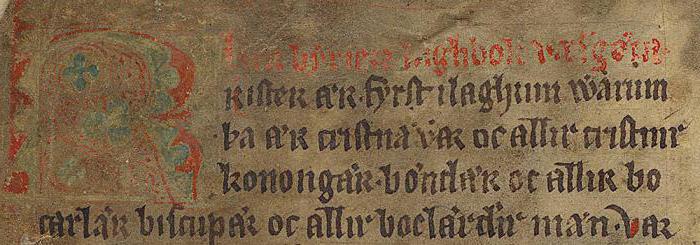 Hær byriæs laghbok væsgøta
Krister ær fyrst i laghum warum
þa ær cristna var oc allir cristnir
konongær bøndær oc allir bo
carlær biscupær oc allir boclærdir mæn. Var